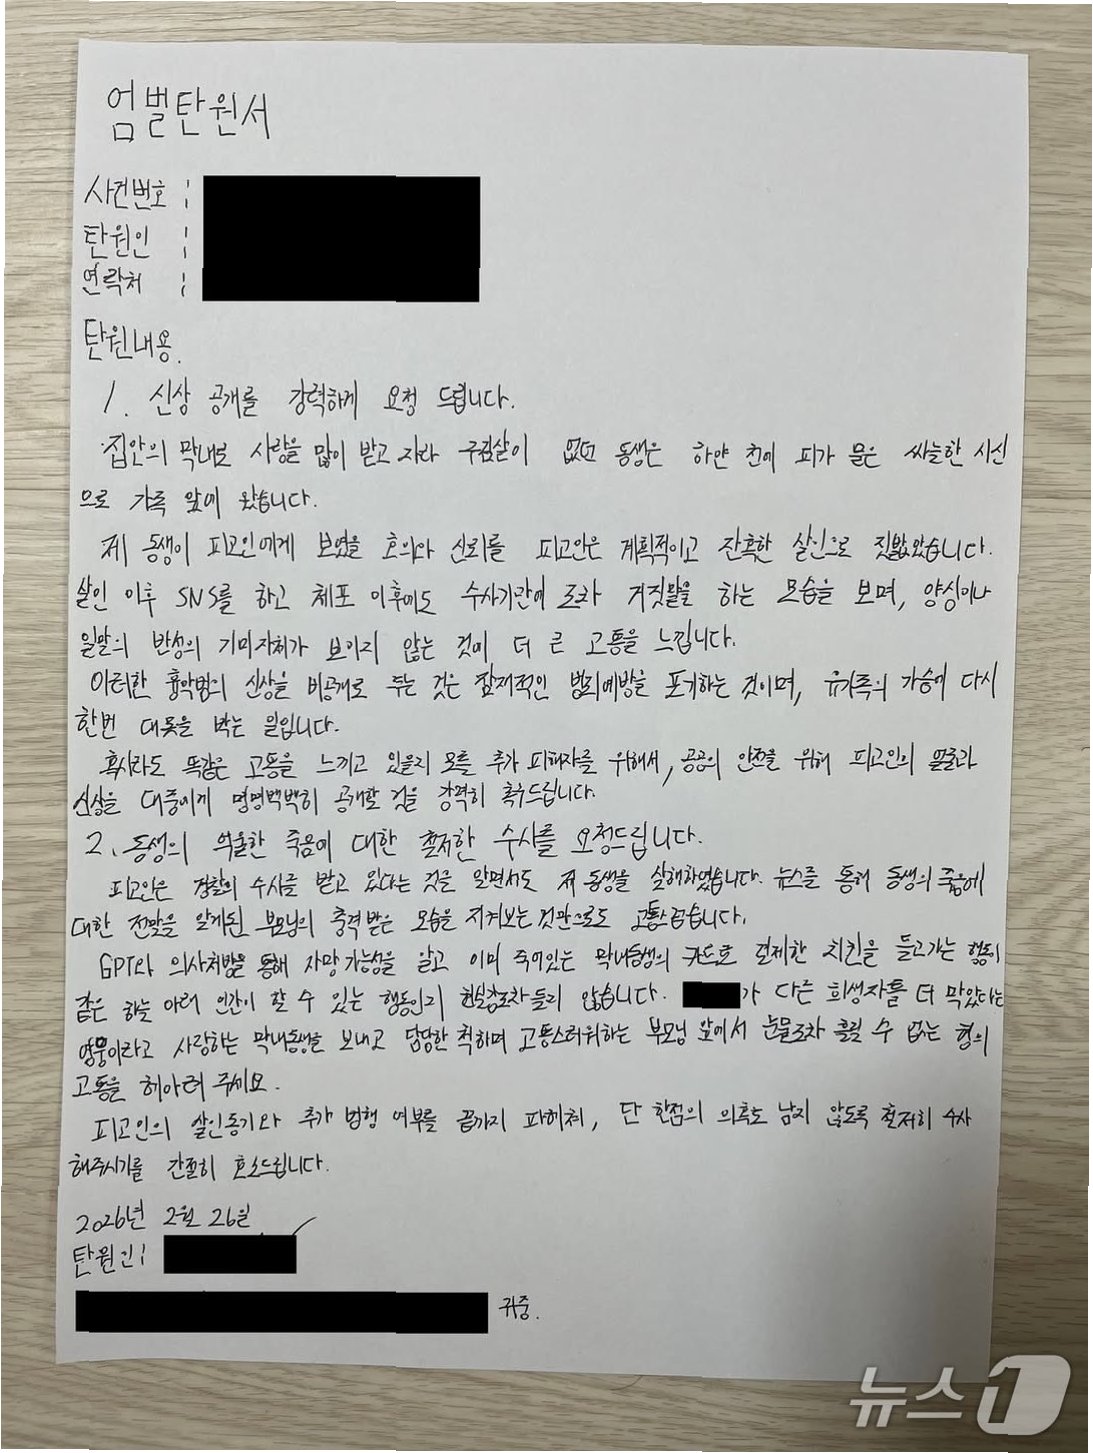 엄벌탄원서
사건번호 :
탄원인 :
연락처 :
탄원내용.
1. 신상 공개를 강력하게 요청 드립니다.
집안의 막내로 사랑을 많이 받고 자라 구김살이 없던 동생은 하얀 천에 피가 물은 싸늘한 시신
으로 가족 앞에 왔습니다.
제 동생이 피고인에게 보였을 호의와 신뢰를 피고인은 계획적이고 잔혹한 살인으로 짓밟았습니다.
살인 이후 SNS를 하고 체포 이후에도 수사기관에 조차 거짓말을 하는 모습을 보며, 양심이나
일말의 반성의 기미자체가 보이지 않는 것에 더 큰 고통을 느낍니다.
이러한 흉악범의 신상을 비공개로 두는 것은 잠재적인 범죄예방을 포기하는 것이며, 유가족의 가슴에 다시
한번 대못을 박는 일입니다.
혹시라도 똑같은 고통을 느끼고 있을지 모를 추가 피해자를 위해서, 공공의 안전을 위해 피고인의 얼굴과
신상을 대중에게 명명백백히 공개할 것을 강력히 촉구드립니다.
2. 동생의 억울한 죽음에 대한 철저한 수사를 요청드립니다.
피고인은 경찰의 수사를 받고 있다는 것을 알면서도 제 동생을 살해하였습니다. 뉴스를 통해 동생의 죽음에
대한 전말을 알게된 부모님의 충격받은 모습을 지켜보는 것만으로도 고통스럽습니다.
GPT와 의사처방을 통해 사망가능성을 알고 이미 죽어있는 막내동생의 카드로 결제한 치킨을 들고가는 행동이
같은 하늘 아래 인간이 할 수 있는 행동인지 현실감조차 들지 않습니다. 가 다른 희생자를 더 막았다는
영웅이라고 사랑하는 막내동생을 보내고 담담한 척하며 고통스러워하는 부모님 앞에서 눈물조차 흘릴 수 없는 형의
고통을 헤아려 주세요.
피고인의 살인동기와 추가 범행 여부를 끝까지 파헤쳐, 단 한점의 의혹도 남지 않도록 철저히 수사
해주시기를 간절히 호소드립니다.
2026년 2월 26일
탄원인:
귀중.
뉴스1